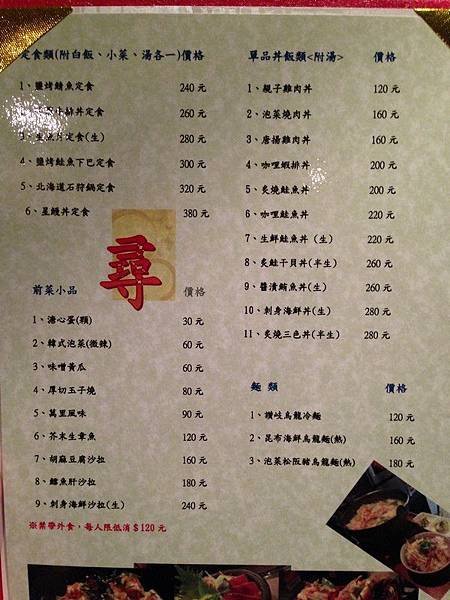 定食類(附白飯、小菜、湯各一)價格
1、鹽烤鯖魚定食 240 元
排丼定食 260 元
3、生魚片定食(生) 280 元
4、鹽烤鮭魚下巴定食 300 元
5、北海道石狩鍋定食 320 元
6、星鰻丼定食 380 元
尋
前菜小品 價格
1、溏心蛋(顆) 30 元
2、韓式泡菜(微辣) 60 元
3、味噌黃瓜 60 元
4、厚切玉子燒 80 元
5、萬里風味 90 元
6、芥末生章魚 120 元
7、胡麻豆腐沙拉 160 元
8、鱈魚肝沙拉 180 元
9、刺身海鮮沙拉(生) 240 元
※禁帶外食，每人限低消$120元
單品丼飯類<附湯> 價格
1、親子雞肉丼 120 元
2、泡菜燒肉丼 160 元
3、唐揚雞肉丼 160 元
4、咖哩蝦排丼 200 元
5、炙燒鮭魚丼 200 元
6、咖哩鮭魚丼 220 元
7、生鮮鮭魚丼（生） 220 元
8、炙鮭干貝丼(半生) 260 元
9、醬漬鮪魚丼(生) 260 元
10、刺身海鮮丼(生) 280 元
11、炙燒三色丼(半生) 280 元
麵 類 價格
1、讚岐烏龍冷麵 120 元
2、昆布海鮮烏龍麵(熱) 160 元
3、泡菜松阪豬烏龍麵(熱) 180 元